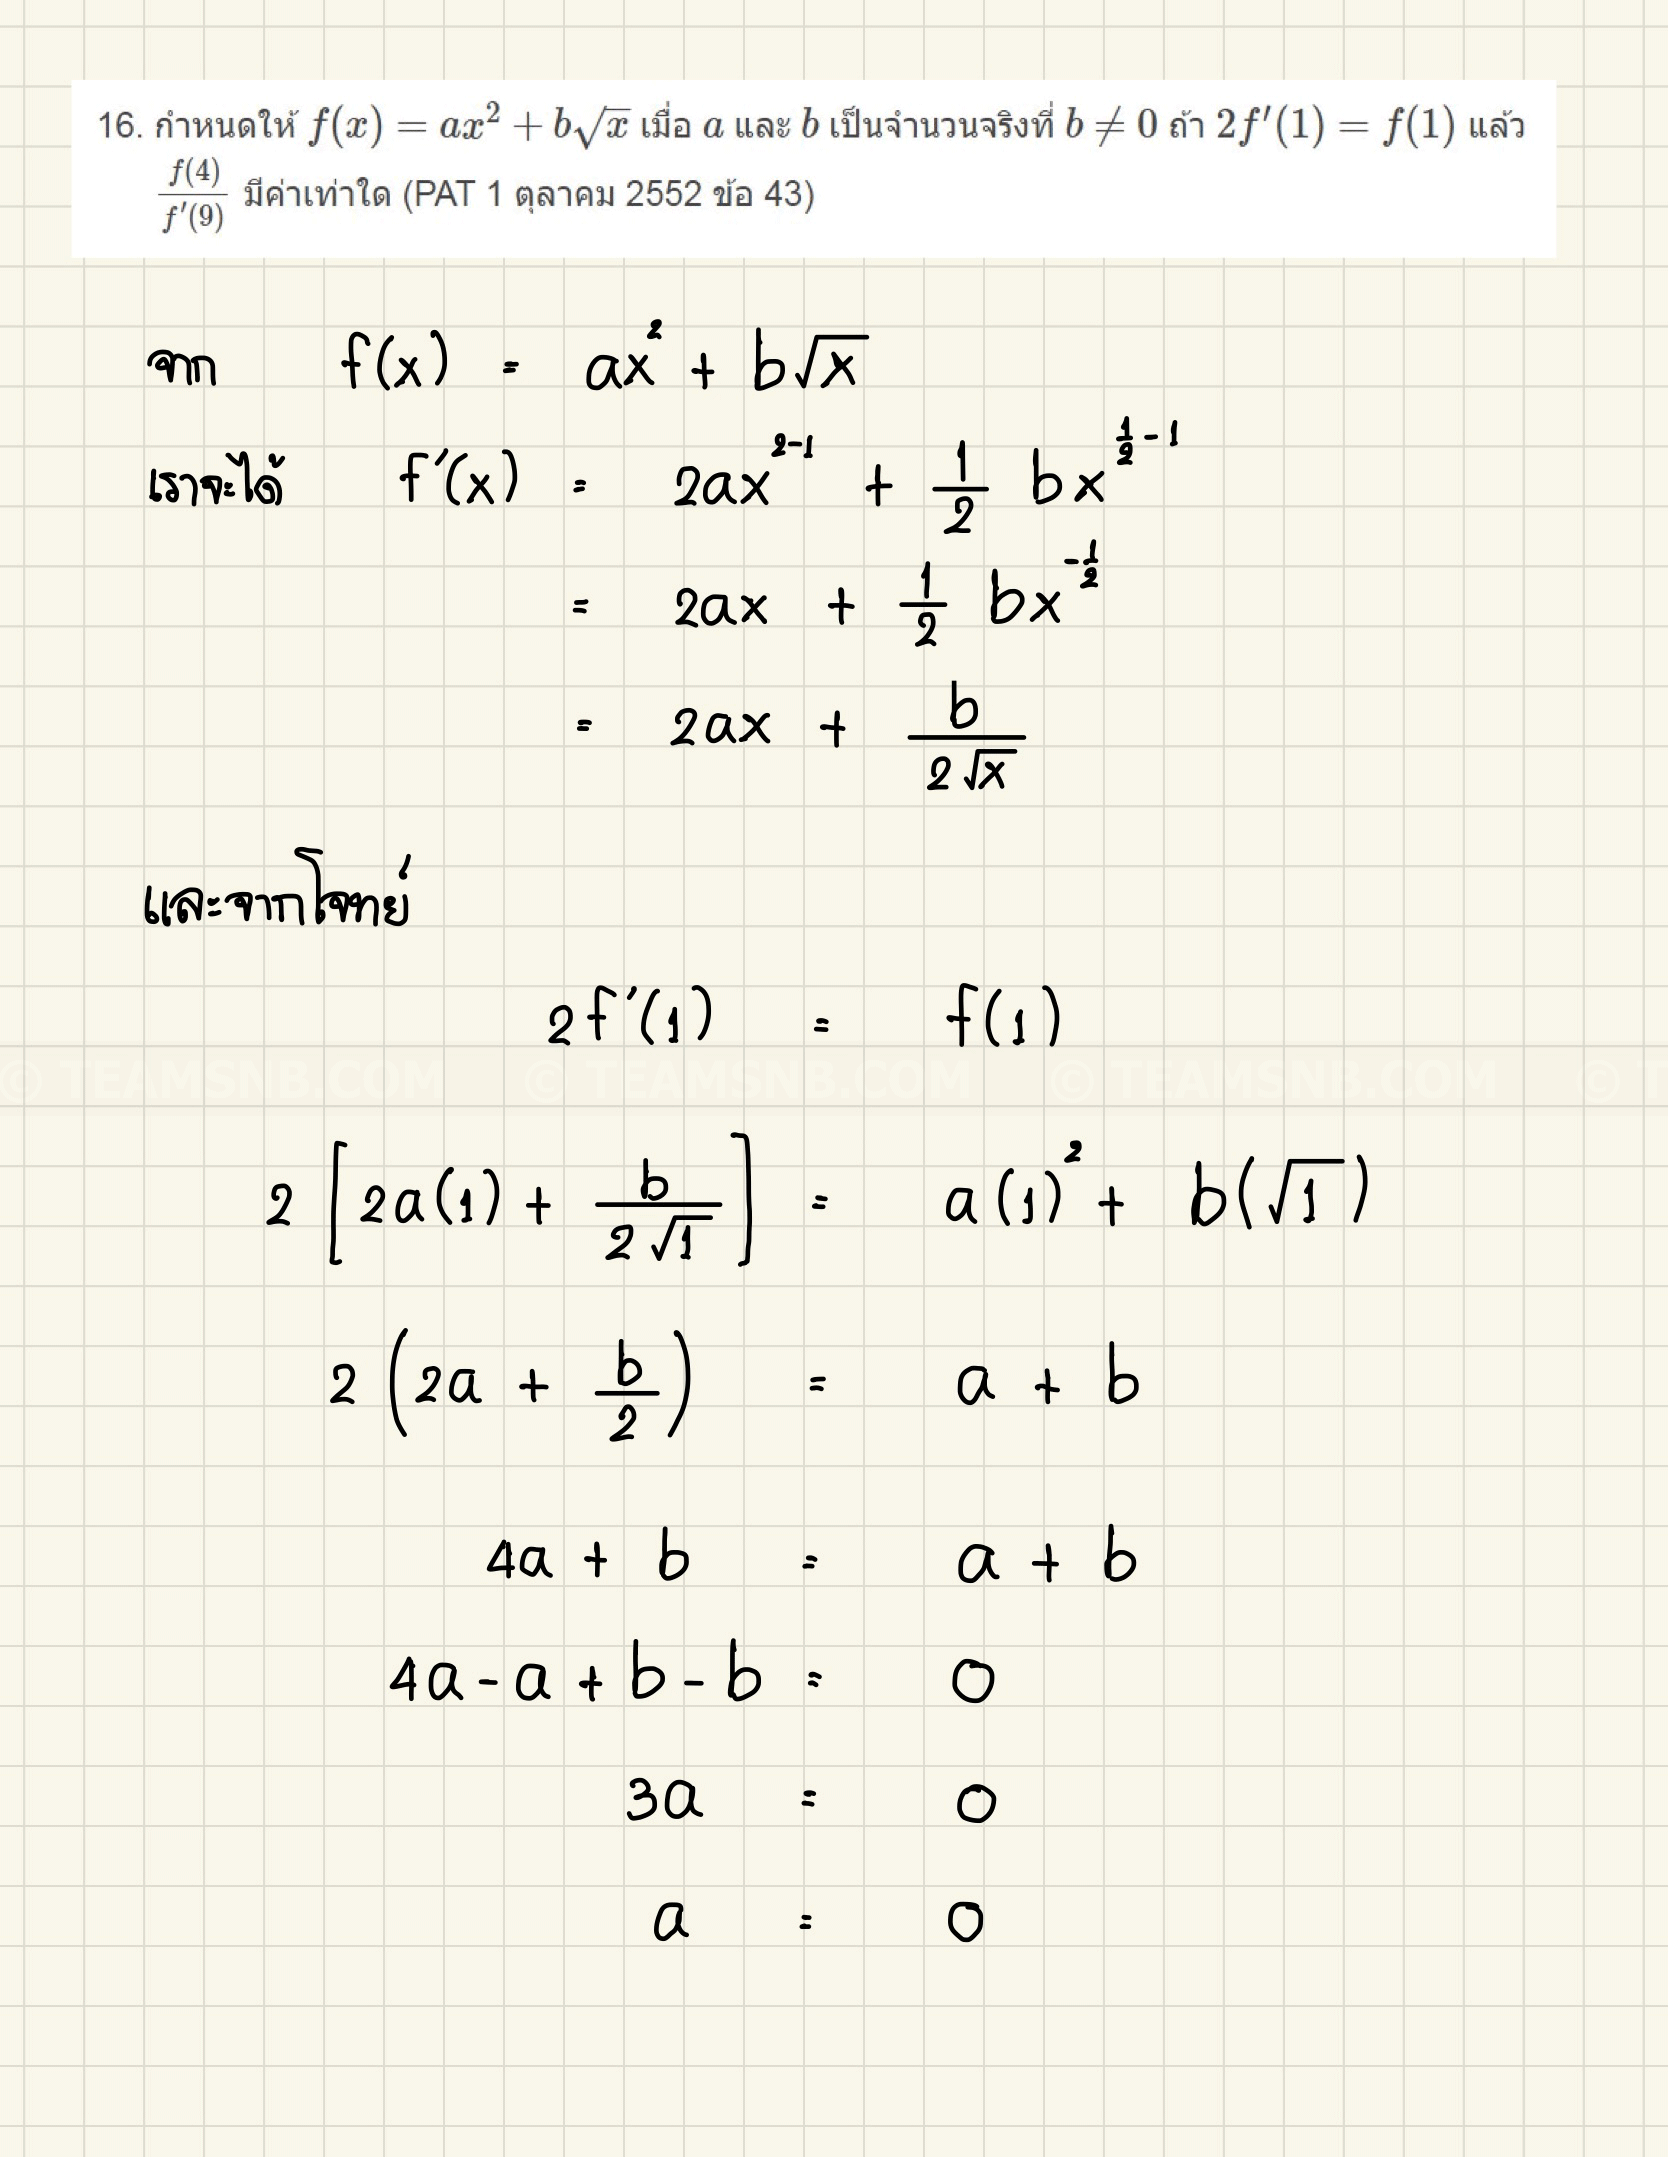 16. กำหนดให้ f(x) = ax² + b√x เมื่อ a และ b เป็นจำนวนจริงที่ b ≠ 0 ถ้า 2f′(1) = f(1) แล้ว
f(4)/f′(9) มีค่าเท่าใด (PAT 1 ตุลาคม 2552 ข้อ 43)
จาก f(x) = ax² + b√x
เราจะได้ f′(x) = 2ax^(2-1) + 1/2 bx^(1/2 - 1)
= 2ax + 1/2 bx^(-1/2)
= 2ax + b/(2√x)
และจากโจทย์
2f′(1) = f(1)
© TEAMSNB.COM © TEAMSNB.COM © TEAMSNB.COM © T
2[2a(1) + b/(2√1)] = a(1)² + b(√1)
2(2a + b/2) = a + b
4a + b = a + b
4a - a + b - b = 0
3a = 0
a = 0